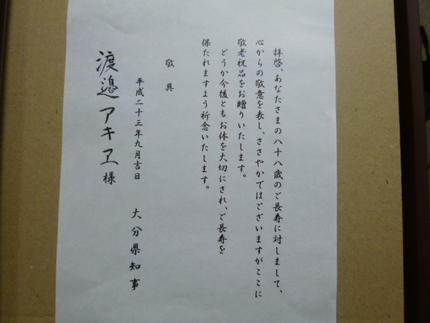 拝啓、あなたさまの八十八歳のご長寿に対しまして、
心からの敬意を表し、ささやかではございますがここに
敬老祝品をお贈りいたします。
どうか今後ともお体を大切にされ、ご長寿を
保たれますよう祈念いたします。
敬具
平成二十三年九月吉日
大分県知事
渡邉アキヱ様